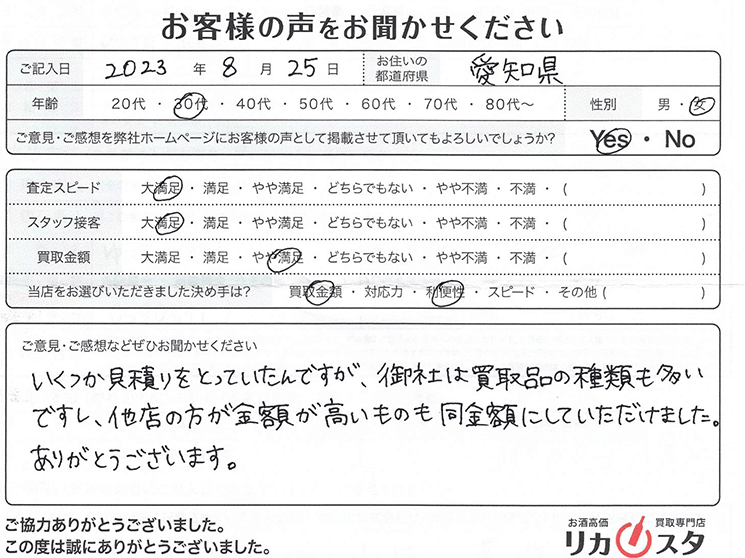 お客様の声をお聞かせください
ご記入日 2023 年 8 月 25 日 お住いの都道府県 愛知県
年齢 20代 ・ 30代 ・ 40代 ・ 50代 ・ 60代 ・ 70代 ・ 80代〜 性別 男 ・ 女
ご意見・ご感想を弊社ホームページにお客様の声として掲載させて頂いてもよろしいでしょうか? Yes ・ No
査定スピード 大満足 ・ 満足 ・ やや満足 ・ どちらでもない ・ やや不満 ・ 不満 ・ ( )
スタッフ接客 大満足 ・ 満足 ・ やや満足 ・ どちらでもない ・ やや不満 ・ 不満 ・ ( )
買取金額 大満足 ・ 満足 ・ やや満足 ・ どちらでもない ・ やや不満 ・ 不満 ・ ( )
当店をお選びいただきました決め手は? 買取金額 ・ 対応力 ・ 利便性 ・ スピード ・ その他 ( )
ご意見・ご感想などぜひお聞かせください
いくつか見積りをとっていたんですが、御社は買取品の種類も多い
ですし、他店の方が金額が高いものも同金額にしていただけました。
ありがとうございます。
ご協力ありがとうございました。
この度は誠にありがとうございました。
お酒高価 買取専門店
リカスタ